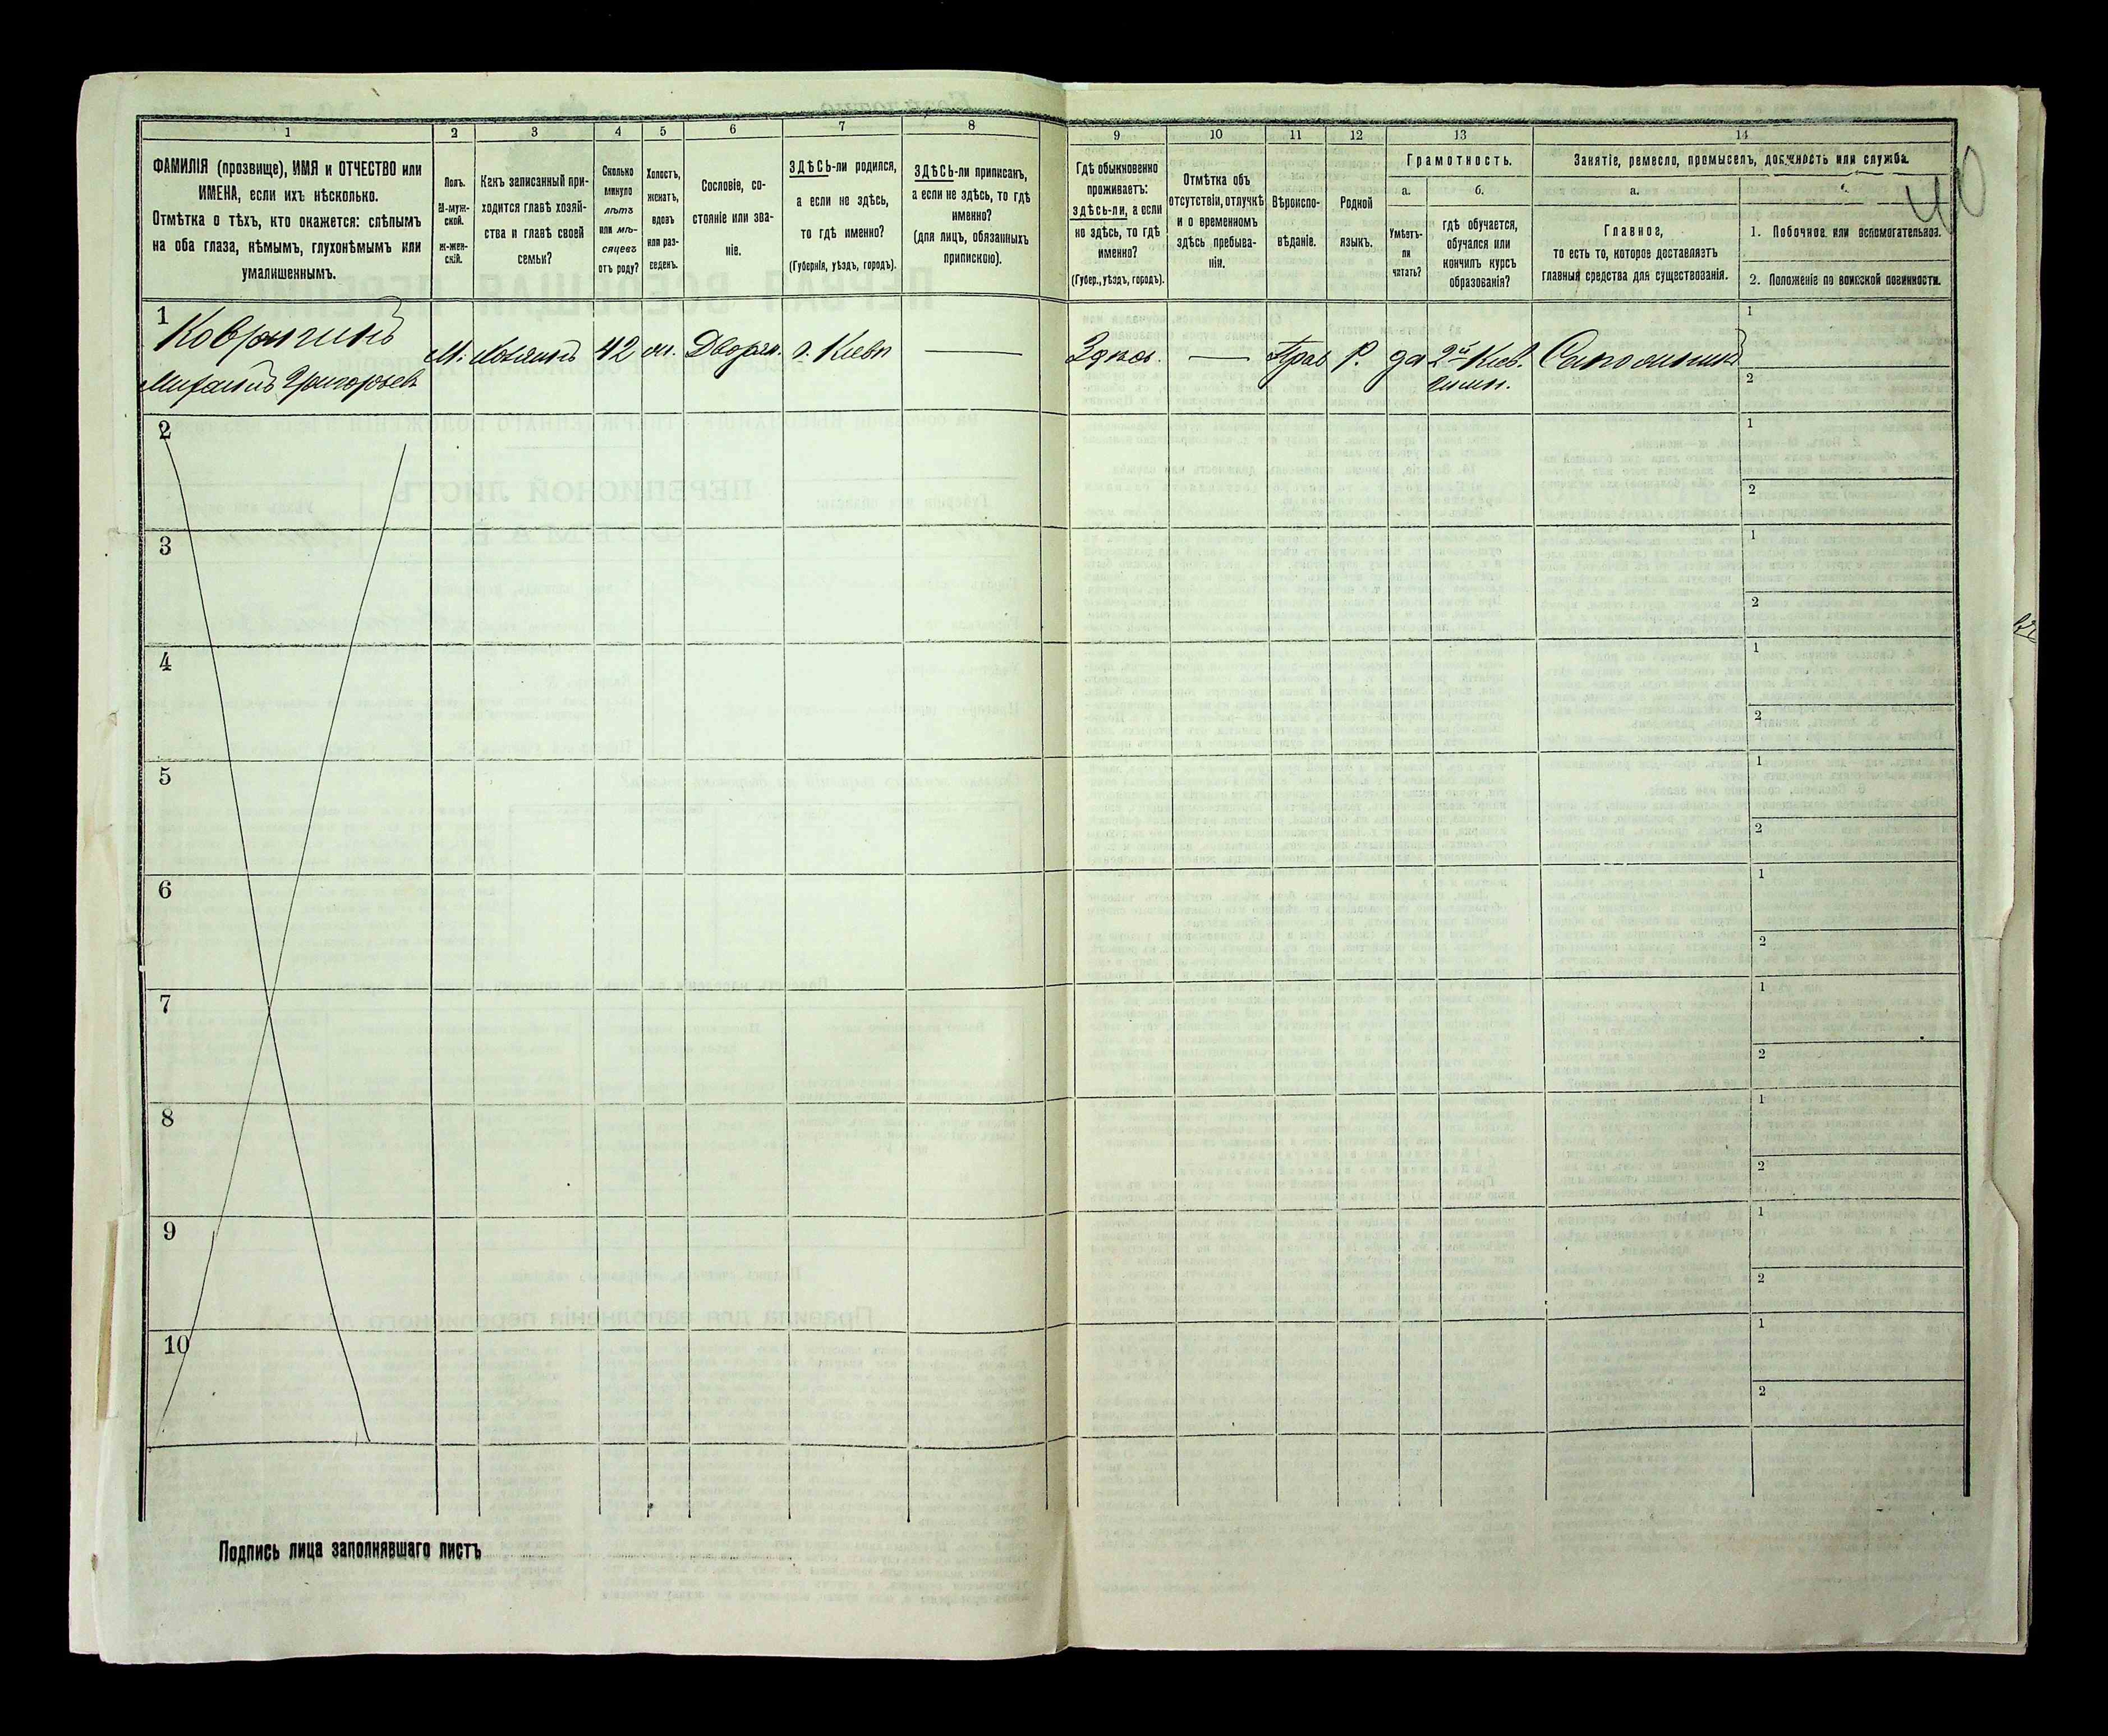 1
2
3
4
5
6
7
8
9
10
11
12
13
14
ФАМИЛІЯ (прозвище), ИМЯ и ОТЧЕСТВО или
ИМЕНА, если ихъ нѣсколько.
Отмѣтка о тѣхъ, кто окажется: слѣпымъ
на оба глаза, нѣмымъ, глухонѣмымъ или
умалишеннымъ.
Полъ.
М-муж-
ской.
ж-жен-
скій.
Какъ записанный при-
ходится главѣ хозяй-
ства и главѣ своей
семьи?
Сколько
минуло
лѣтъ
или мѣ-
сяцевъ
отъ роду?
Холостъ,
женатъ,
вдовъ
или раз-
веденъ.
Сословіе, со-
стояніе или зва-
ніе.
ЗДѢСЬ-ли родился,
а если не здѣсь,
то гдѣ именно?
(Губернія, уѣздъ, городъ).
ЗДѢСЬ-ли приписанъ,
а если не здѣсь, то гдѣ
именно?
(для лицъ, обязанныхъ
припискою).
Гдѣ обыкновенно
проживаетъ:
здѣсь-ли, а если
не здѣсь, то гдѣ
именно?
(Губер., уѣздъ, городъ).
Отмѣтка объ
отсутствіи, отлучкѣ
и о временномъ
здѣсь пребыва-
ніи.
Вѣроиспо-
вѣданіе.
Родной
языкъ.
Грамотность.
а.
б.
Умѣетъ-
ли
читать?
гдѣ обучается,
обучался или
кончилъ курсъ
образованія?
Занятіе, ремесло, промыселъ, должность или служба.
а.
Главное,
то есть то, которое доставляетъ
главныя средства для существованія.
1. Побочное или вспомогательное.
2. Положеніе по воинской повинности.
40
1
Ковригинъ
Михаилъ Григорьев
М.
Хозяинъ
42
Дворян.
г. Кіевъ
Здѣсь.
Прав
Р.
да
2й Кіев.
гимн.
1
2
2
1
2
3
1
2
4
1
2
5
1
2
6
1
2
7
1
2
8
1
2
9
1
2
10
1
2
Подпись лица заполнявшаго листъ